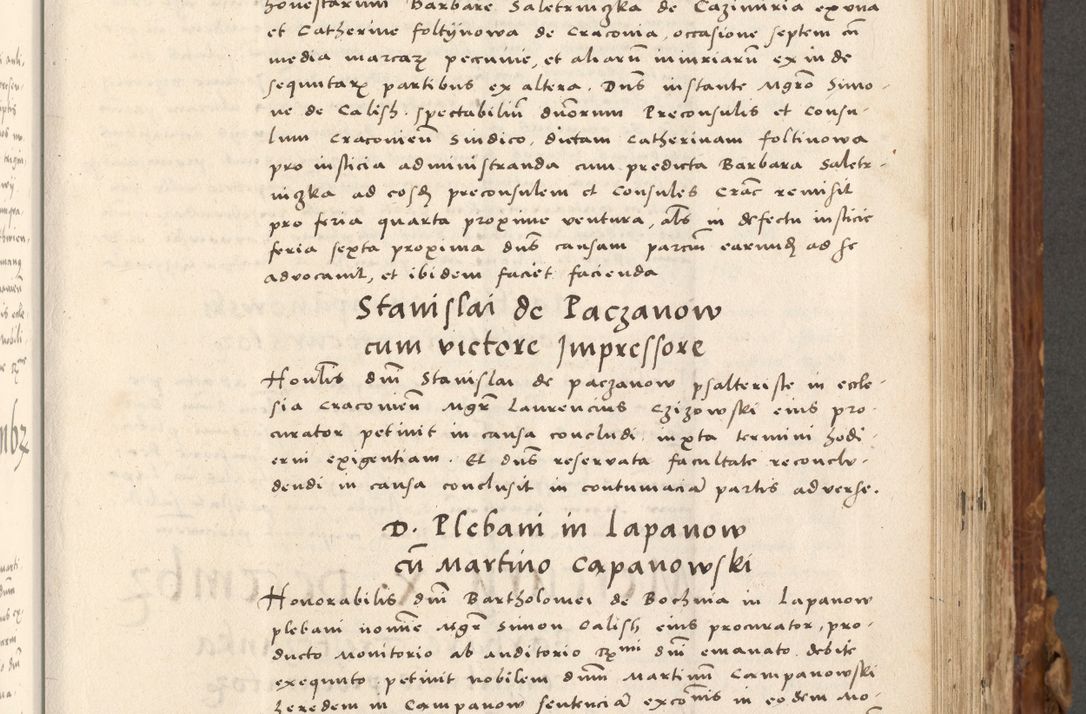 honestarum Barbare Saletrniczka de Cazimiria ex una
et Catherine foltijnowa de Craconia, occasione septem cū
media marcarꝝ peccunie, et aliarū iniuriarū ex inde
sequutarꝝ partibus ex altera. Dns instante Mgrō Simo-
ne de Calish. spectabiliū dnōrum Preconsulis et Consu-
lum Cracovieñ Sindico, dictam Catherinam foltinowa
pro iusticia administranda cum predicta Barbara Saletr-
niczka ad eosdꝫ preconsulem et Consules Crac̄ remisit
pro feria quarta proxime ventura, al̄s in defectu iusticie
feria sexta proxima dn̄s causam parciū earundꝫ ad se
advocavit, et ibidem faciet facienda
Stanislai de Paczanow
cum victore Impressore
Honl̄is dn̄i Stanislai de paczanow psalteriste in eccle-
sia Cracovieñ Mgr̄ Laurencius Czizowski eius pro-
curator petivit in causa concludi iuxta termini hodi-
erni exigentiam. Et dn̄s reservata facultate reconclu-
dendi in causa conclusit in contumaciā partis adverse.
D. Plebani in Lapanow
cū Martino Capanowski
Honorabilis dn̄i Bartholomei de Bochnia in Lapanow
plebani noīne Mgr̄ Simon Calish eius procurator, pro-
ducto Monitorio ab auditorio Rᵐⁱ dn̄i emanato debite
exequuto petivit nobilem dn̄m Martinū Campanowski
heredem in Campanow sentenciā excōnis in eodem Mo-